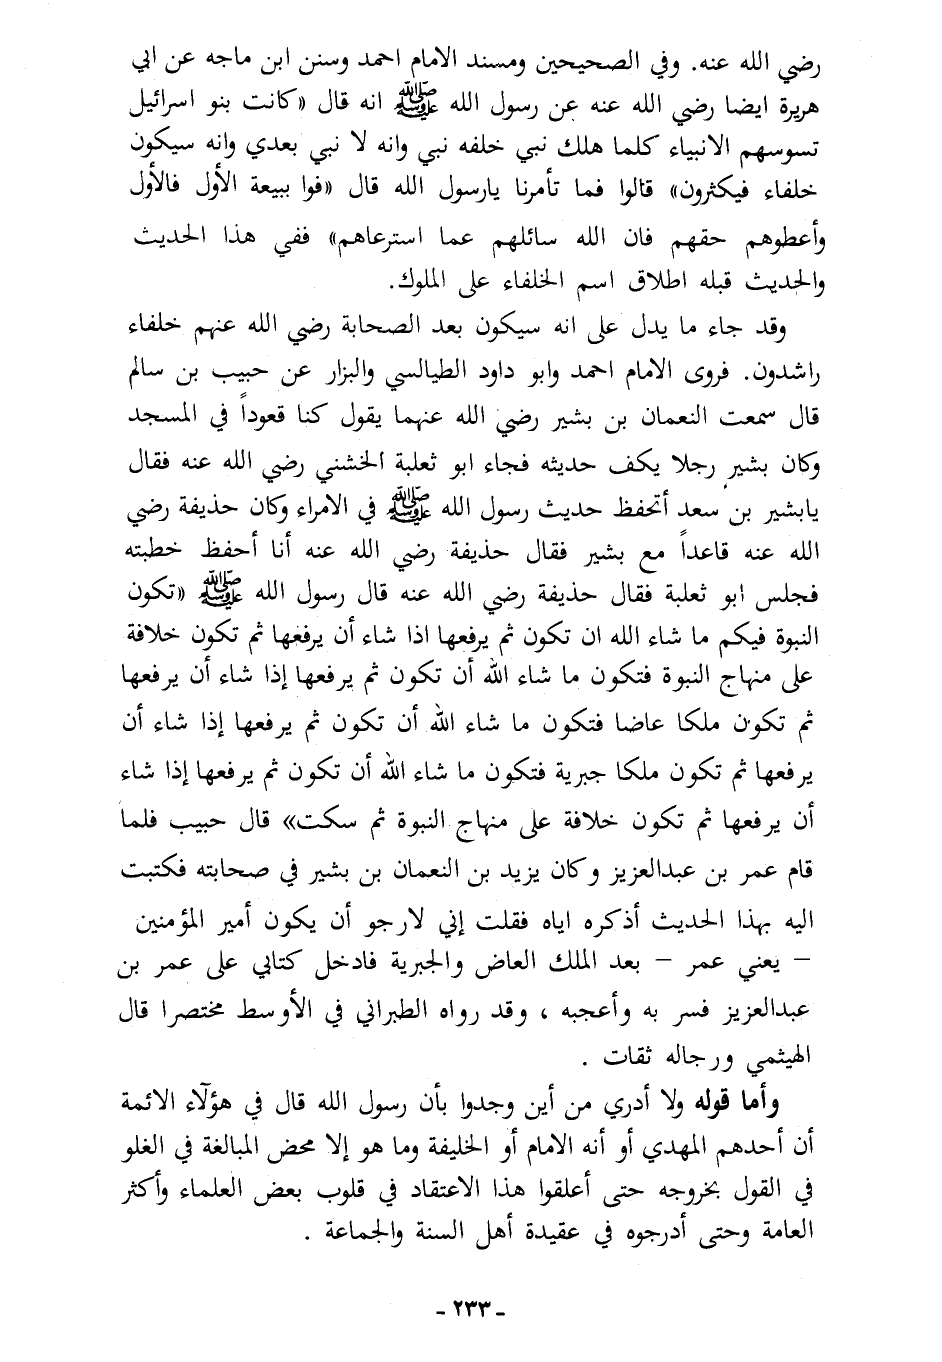 رضي الله عنه. وفي الصحيحين ومسند الامام احمد وسنن ابن ماجه عن ابي
هريرة ايضا رضي الله عنه عن رسول الله ﷺ انه قال «كانت بنو اسرائيل
تسوسهم الانبياء كلما هلك نبي خلفه نبي وانه لا نبي بعدي وانه سيكون
خلفاء فيكثرون» قالوا فما تأمرنا يارسول الله قال «فوا ببيعة الأول فالأول
وأعطوهم حقهم فان الله سائلهم عما استرعاهم» ففي هذا الحديث
والحديث قبله اطلاق اسم الخلفاء على الملوك.
وقد جاء ما يدل على انه سيكون بعد الصحابة رضي الله عنهم خلفاء
راشدون. فروى الامام احمد وابو داود الطيالسي والبزار عن حبيب بن سالم
قال سمعت النعمان بن بشير رضي الله عنهما يقول كنا قعوداً في المسجد
وكان بشير رجلا يكف حديثه فجاء ابو ثعلبة الخشني رضي الله عنه فقال
يابشير بن سعد أتحفظ حديث رسول الله ﷺ في الامراء وكان حذيفة رضي
الله عنه قاعداً مع بشير فقال حذيفة رضي الله عنه أنا أحفظ خطبته
فجلس ابو ثعلبة فقال حذيفة رضي الله عنه قال رسول الله ﷺ «تكون
النبوة فيكم ما شاء الله ان تكون ثم يرفعها اذا شاء أن يرفعها ثم تكون خلافة
على منهاج النبوة فتكون ما شاء الله أن تكون ثم يرفعها إذا شاء أن يرفعها
ثم تكون ملكا عاضا فتكون ما شاء الله أن تكون ثم يرفعها إذا شاء أن
يرفعها ثم تكون ملكا جبرية فتكون ما شاء الله أن تكون ثم يرفعها إذا شاء
أن يرفعها ثم تكون خلافة على منهاج النبوة ثم سكت» قال حبيب فلما
قام عمر بن عبدالعزيز وكان يزيد بن النعمان بن بشير في صحابته فكتبت
اليه بهذا الحديث أذكره اياه فقلت إني لارجو أن يكون أمير المؤمنين
– يعني عمر – بعد الملك العاض والجبرية فادخل كتابي على عمر بن
عبدالعزيز فسر به وأعجبه ، وقد رواه الطبراني في الأوسط مختصرا قال
الهيثمي ورجاله ثقات .
وأما قوله ولا أدري من أين وجدوا بأن رسول الله قال في هؤلآء الائمة
أن أحدهم المهدي أو أنه الامام أو الخليفة وما هو إلا محض المبالغة في الغلو
في القول بخروجه حتى أعلقوا هذا الاعتقاد في قلوب بعض العلماء وأكثر
العامة وحتى أدرجوه في عقيدة أهل السنة والجماعة .
- ٢٣٣ -